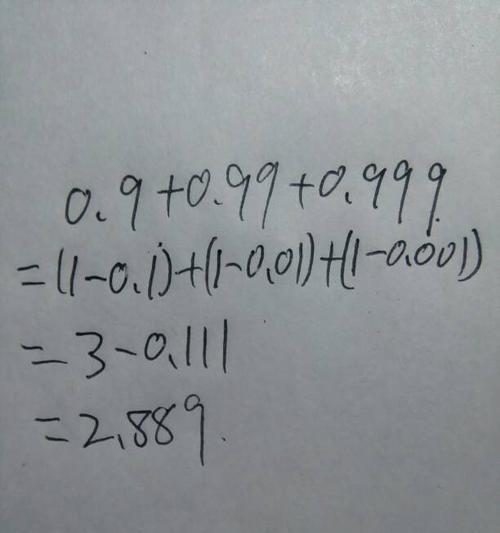 0.9+0.99+0.999
=(1-0.1)+(1-0.01)+(1-0.001)
=3-0.111
=2.889.